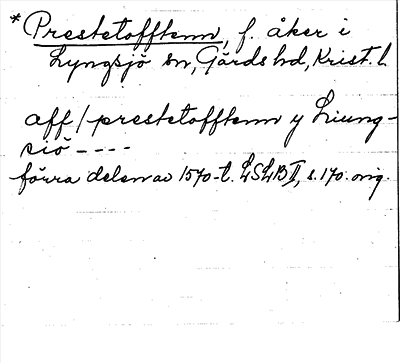 * Prestetofftenn, f. åker i
Lyngsjö sn, Gärds hd, Krist. l.
aff / prestetofftenn y Liung-
siö - - - -
förra delen av 1570-t. LSLB II, s. 170. orig.